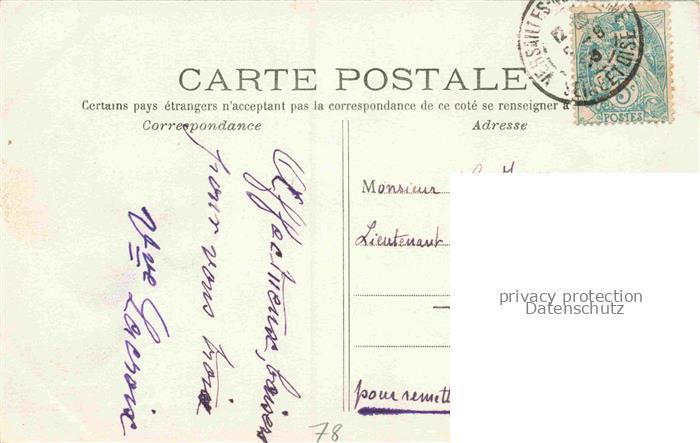 CARTE POSTALE
Certains pays étrangers n'acceptant pas la correspondance de ce coté se renseigner à
Correspondance
Adresse
VERSAILLES
SEINE-ET-OISE
5c
POSTES
Affectueux baisers
pour vous trois
Vve Lacroix
Monsieur
Lieutenant
pour remett
privacy protection
Datenschutz
78